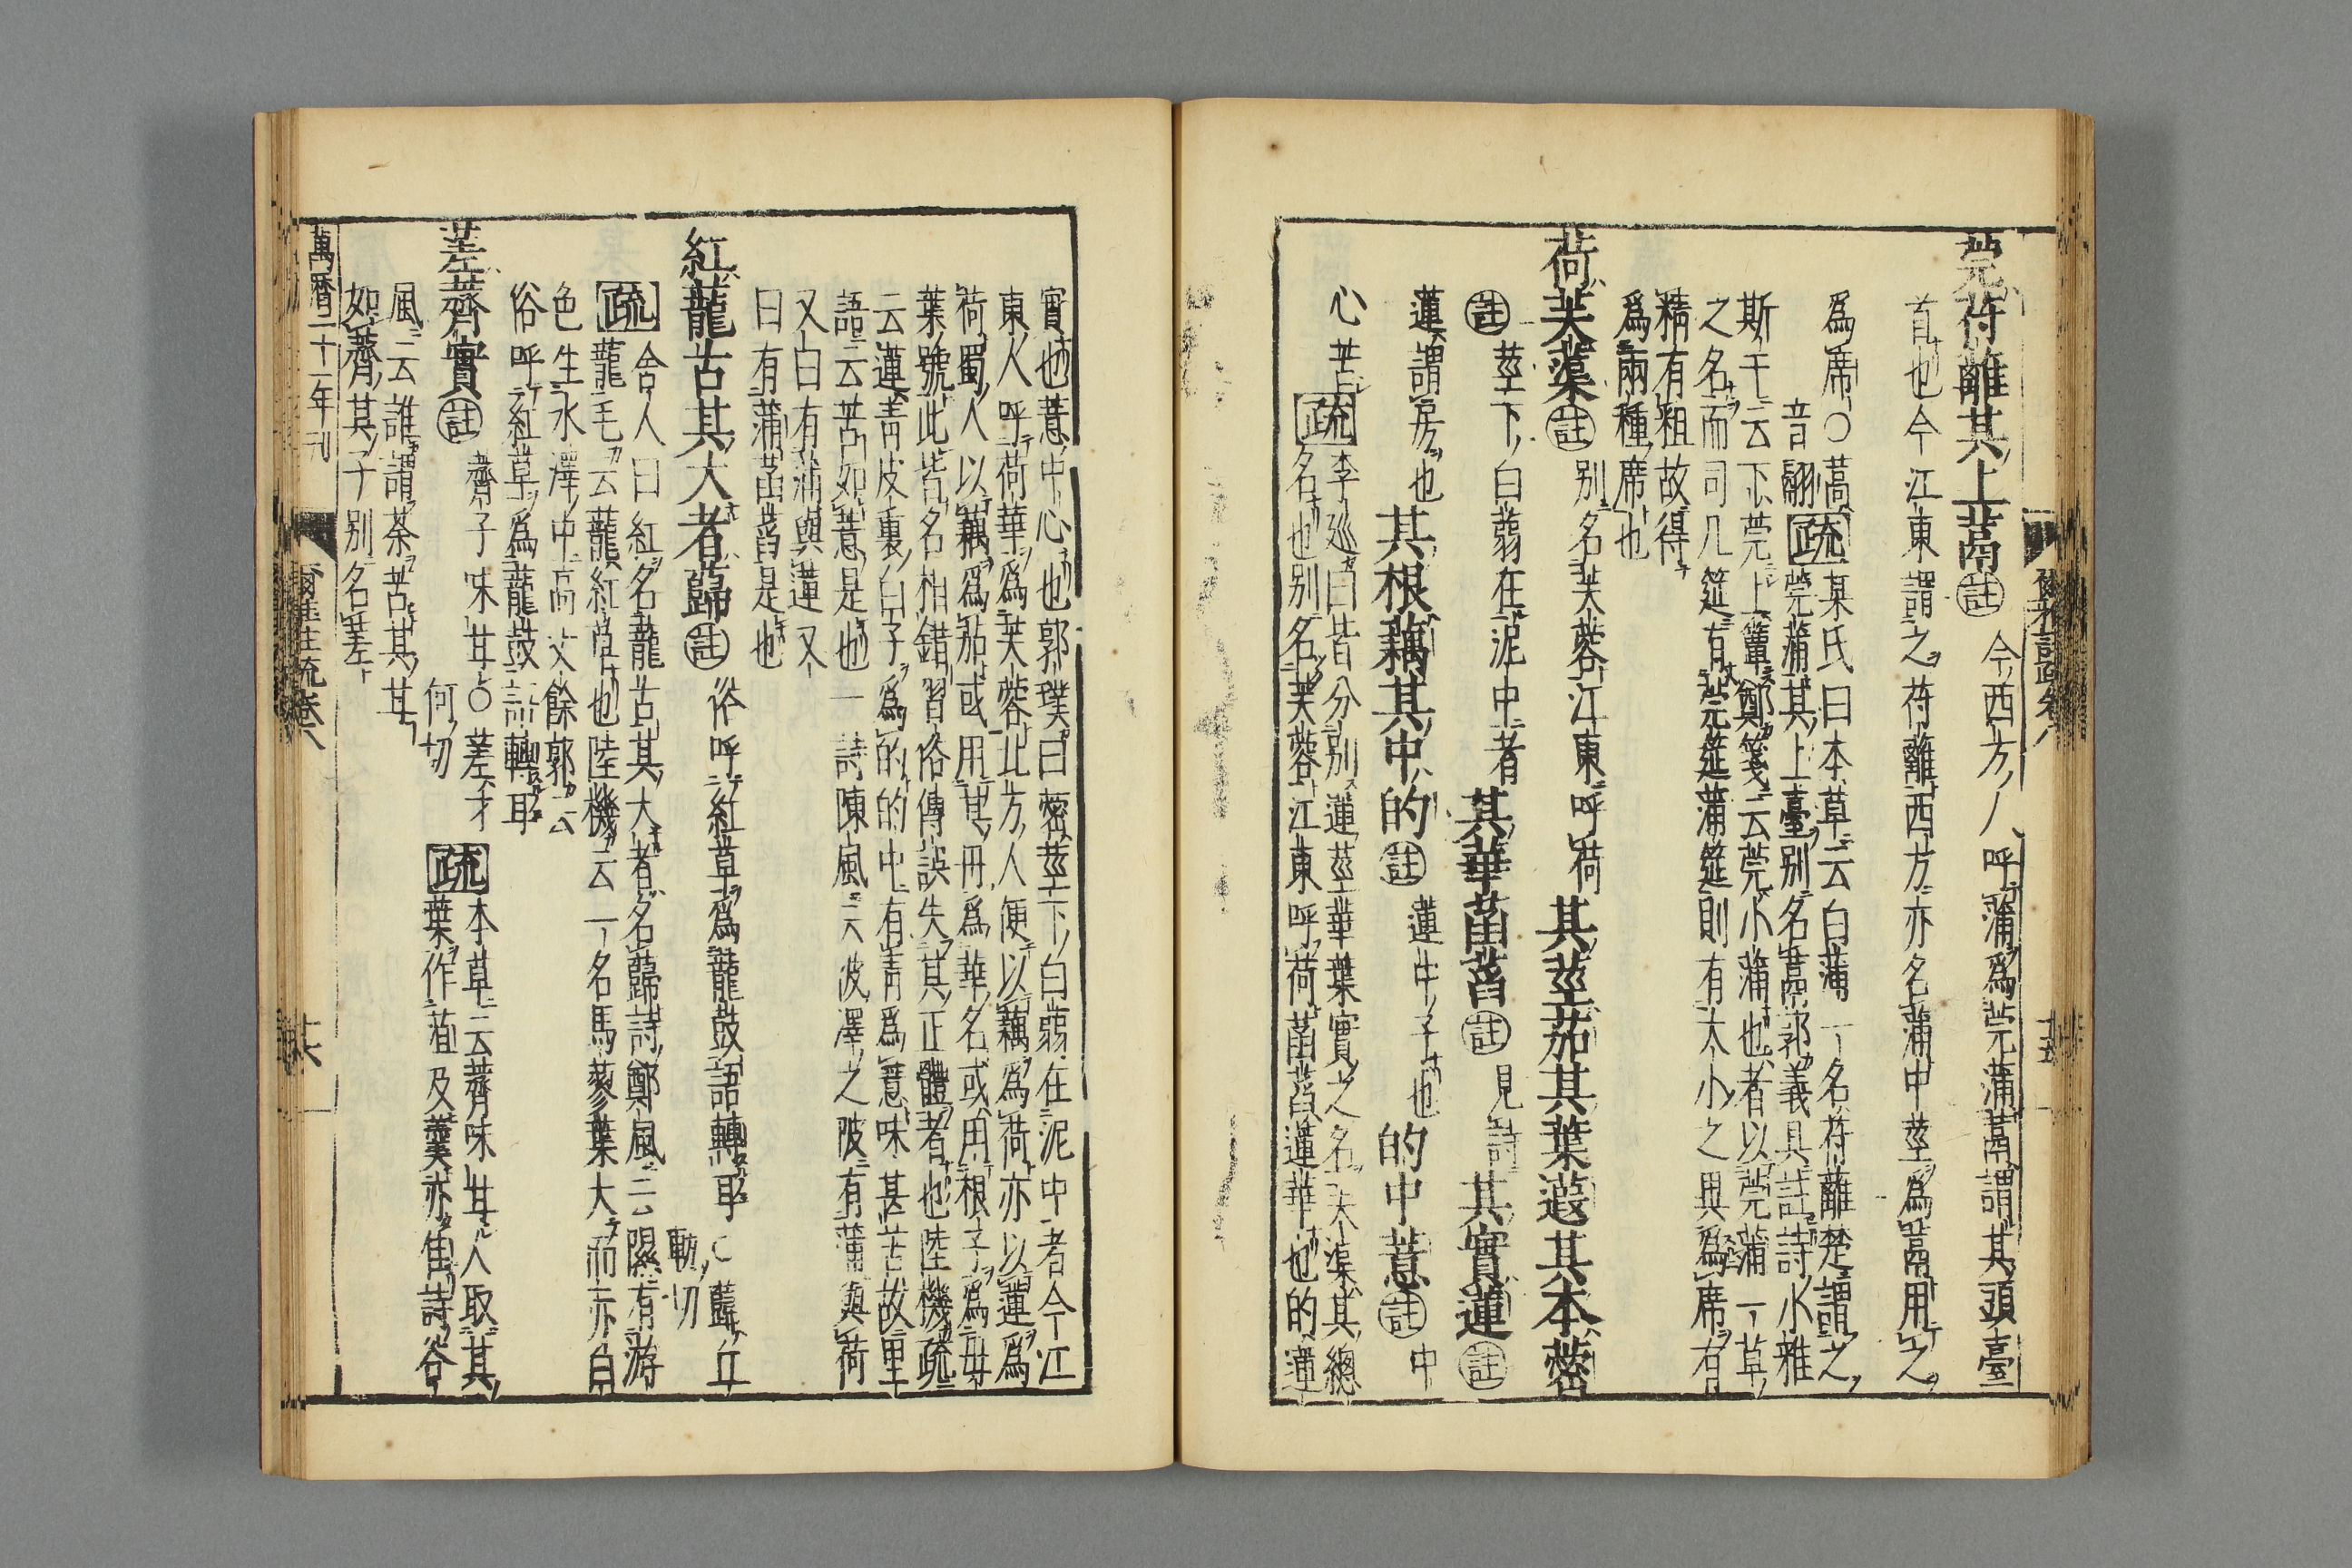 莞苻蘺其上蒚註今西方人呼蒲爲莞蒲蒚謂其頭臺
首也今江東謂之苻蘺西方亦名蒲中莖爲蒚用之
爲席○蒚
音翮疏某氏曰本草云白蒲一名苻蘺楚謂之
莞蒲其上臺別名蒚郭義具註詩小雅
斯干云下莞上簟鄭箋云莞小蒲也者以莞蒲一草
之名而司几筵有莞筵蒲筵則有大小之異爲席有
精有粗故得
爲兩種席也
荷芙蕖註別名芙蓉江東呼荷其莖茄其葉蕸其本蔤
註莖下白蒻在泥中者其華菡萏註見詩其實蓮註
蓮謂房也其根藕其中的註蓮中子也的中薏註中
心苦疏李巡曰皆分別蓮莖華葉實之名芙渠其總
名也別名芙蓉江東呼荷菡萏蓮華也的蓮
實也薏中心也郭璞曰蔤莖下白蒻在泥中者今江
東人呼荷華爲芙蓉北方人便以藕爲荷亦以蓮爲
荷蜀人以藕爲茄或用其母爲華名或用根子爲母
葉號此皆名相錯習俗傳誤失其正體者也陸機疏
云蓮青皮裏白子爲的的中有青爲薏味甚苦故里
語云苦如薏是也一詩陳風云彼澤之陂有蒲與荷
又曰有蒲與蓮又
曰有蒲菡萏是也
紅蘢古其大者蘬註俗呼紅草爲蘢鼓語轉耳○蘬丘
軌切
疏舍人曰紅名蘢古其大者名蘬詩鄭風云隰有游
龍毛云蘢紅草也陸機云一名馬蓼葉大而赤白
色生水澤中高丈餘郭云
俗呼紅草爲蘢鼓語轉耳
蒫薺實註薺子味甘○蒫才
何切
疏本草云薺味甘人取其
葉作菹及羹亦佳詩谷
風云誰謂荼苦其甘
如薺其子別名蒫
萬曆二十一年刊
爾雅註疏卷八